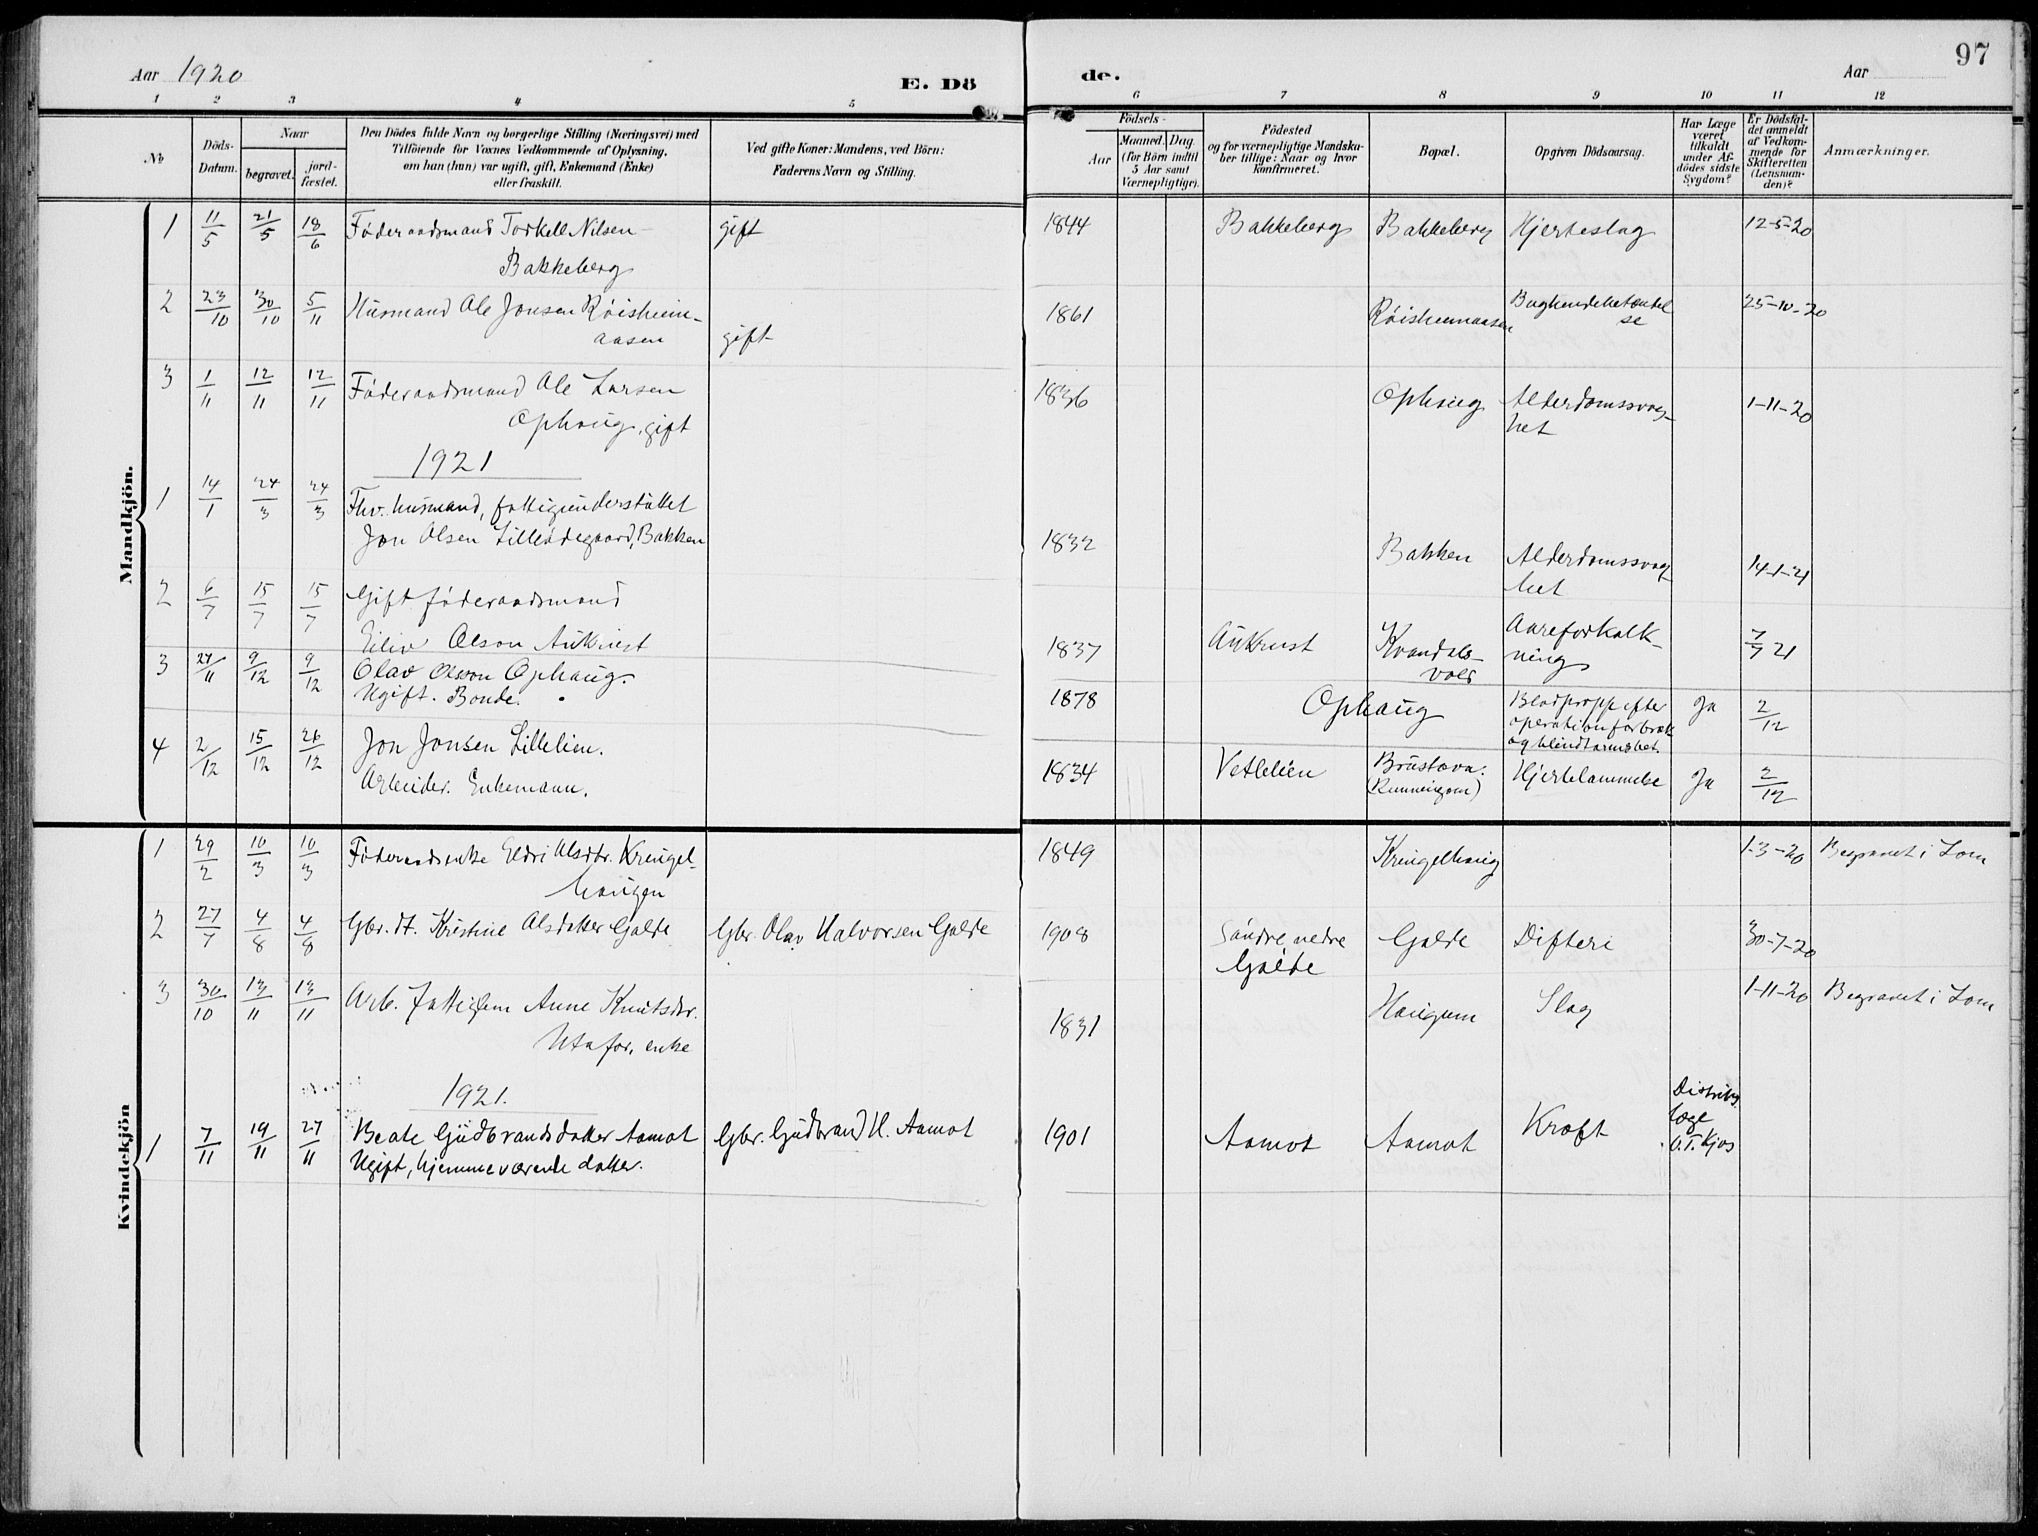 Aar 1920
E. Dö
de.
Aar
97
1 2 3 4 5 6 7 8 9 10 11 12
No
Döds-
Datum.
Naar
begravet.
jord-
fæstet.
Den Dödes fulde Navn og borgerlige Stilling (Næringsvei) med
Tilföiende for Voxnes Vedkommende af Oplysning,
om han (hun) var ugift, gift, Enkemand (Enke)
eller fraskilt.
Ved gifte Koner: Mandens, ved Börn:
Faderens Navn og Stilling.
Födsels-
Aar
Maaned. Dag.
(for Börn indtil
5 Aar samt
Værnepligtige).
Födested
og for værnepligtige Mandska-
ber tillige: Naar og hvor
konfirmeret.
Bopæl.
Opgiven Dödsaarsag.
Har Læge
været
tilkaldt
under Af-
dödes sidste
Sygdom?
Er Dödsfal-
det anmeldt
af Vedkom-
mende for
Skifteretten
(Lensman-
den)?
Anmærkninger.
Mandkjön.
1 11/5 21/5 18/6 Föderaadsmand Torkell Nilsen gift 1844 Bakkeberg Bakkeberg Hjerteslag 12-5-20
Bakkeberg
2 23/10 30/10 5/11 Husmand Ole Jonsen Röisheim- 1861 Röisheimaasen Bughindebetændel 25-10-20
aasen gift se
3 1/11 12/11 12/11 Föderaadsmand Ole Larsen 1836 Ophaug Alderdomssvag- 1-11-20
Ophaug, gift het
1921
1 14/1 24/3 24/3 Fhv. husmand, fattigunderstöttet
Jon Olsen Lilleödegaard, Bakken 1832 Bakken Alderdomssvag- 14-1-21
het
2 6/7 15/7 15/7 Gift föderaadsmand
Eiliv Olson Aukrust 1837 Aukrust Kvandals- Aareforkalk- 7/7 21
vold ning
3 27/11 9/12 9/12 Olav Olson Ophaug. 1878 Ophaug Blodpropp efter Ja 2/12
Ugift. Bonde. operation for brok
og blindtarmsbet.
4 2/12 15/12 26/12 Jon Jonsen Lillelien. 1834 Vetleien Hjertelammelse Ja 3/12
Arbeider. Enkemann.
Kvindekjön
1 29/2 10/3 10/3 Föderaadsenke Eldri Olsdtr. Kringel- 1849 Kringelhaug 1-3-20 Begravet i Lom
haugen
2 27/7 4/8 4/8 Gbr. dt. Kristine Olsdatter Galde Gbr. Olav Halvorsen Galde 1908 Söndre, nedre Galde Difteri 30-7-20
Galde
3 30/10 13/11 13/11 Arb. fattiglem Anne Knutsdtr. 1831 Haugum Slag 1-11-20 Begravet i Lom
Utafor, enke
1921.
1 7/11 19/11 27/11 Beate Gudbrandsdatter Aamot Gbr. Gudbrand H. Aamot 1901 Aamot Aamot Kræft Distrikts
Ugift, hjemmeværende datter. læge
O.T. Kjos